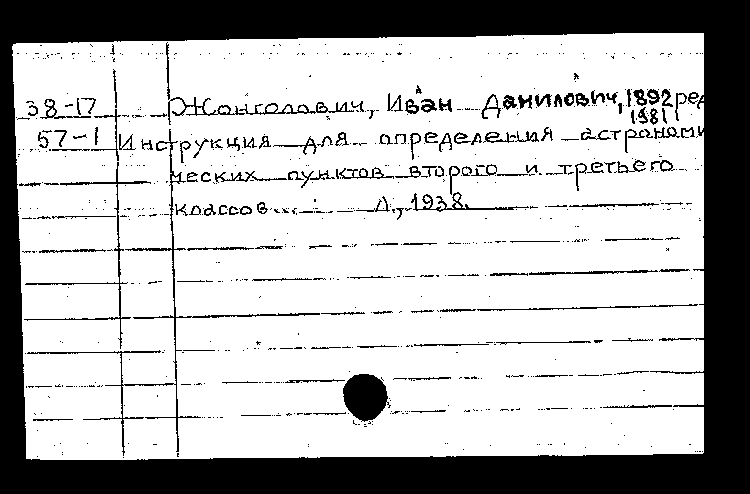 38-17 Жонголович, Иван Данилович, 1892 ред
1981
57-1 Инструкция для определения астрономи
ческих пунктов второго и третьего
классов... : Л., 1938.